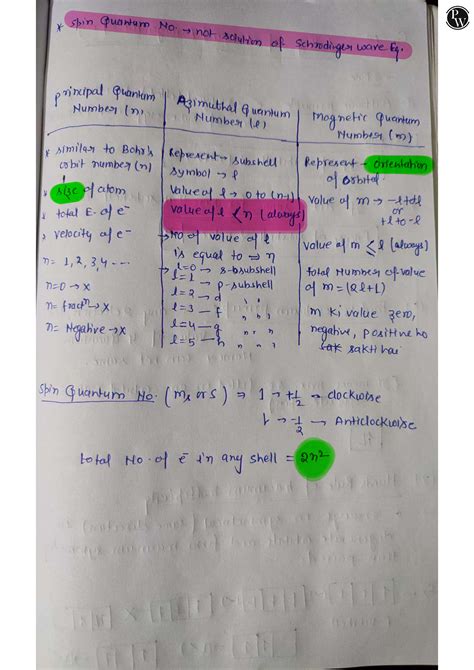 PW
* Spin Quantum No. → not solution of Schrodinger wave Eq.
Principal Quantum
Number (n)
* similar to Bohr's
orbit number (n)
* size of atom
* total E. of e⁻
* velocity of e⁻
n = 1, 2, 3, 4 ----
n = 0 → x
n = fractⁿ → x
n = Negative → x
Azimuthal Quantum
Number (l)
Represent → subshell
symbol → l
Value of l → 0 to (n-1)
Value of l < n (always)
→ No. of value of l
is equal to ⇒ n
l = 0 → s-subshell
l = 1 → p-subshell
l = 2 → d " "
l = 3 → f " "
l = 4 → g " "
l = 5 → h " "
Magnetic Quantum
Number (m)
Represent → Orientation
of orbital.
Value of m → -l to l
or
+l to -l
Value of m ≤ l (always)
total Number of value
of m = (2l+1)
m ki value zero,
negative, positive ho
sakti hai
Spin Quantum No. (ms or s) ⇒ 1 → +1/2 → clockwise
1 → -1/2 → Anticlockwise
total No. of e⁻ in any shell = 2n²